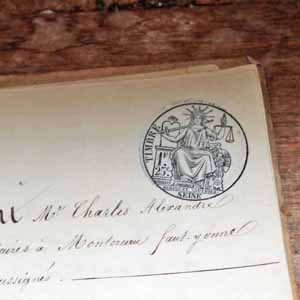 TIMBRE
SEINE
Mr Charles Alexandre
aires à Montereau faut-yonne
ussignés.